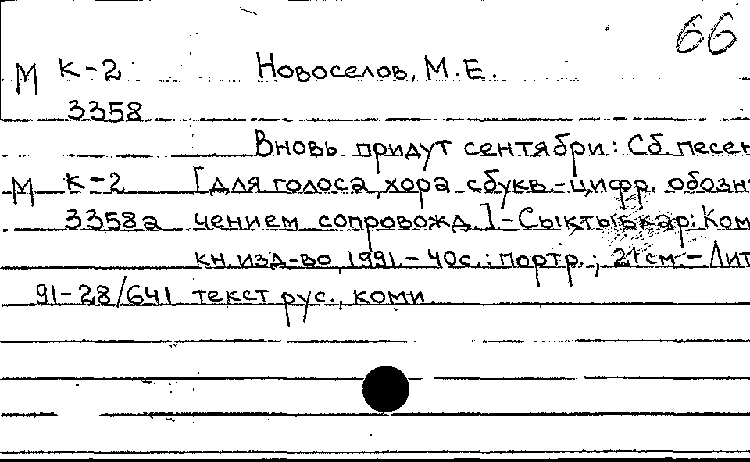 66
М К-2 Новоселов, М.Е.
3358
Вновь придут сентябри: Сб. песен
М К-2 [для голоса, хора с букв.-цифр. обозн
3358а чением сопровожд.]-Сыктывкар: Ком
кн. изд-во, 1991.- 40с.: портр.; 21см.- Лит
91-28/641 текст рус., коми